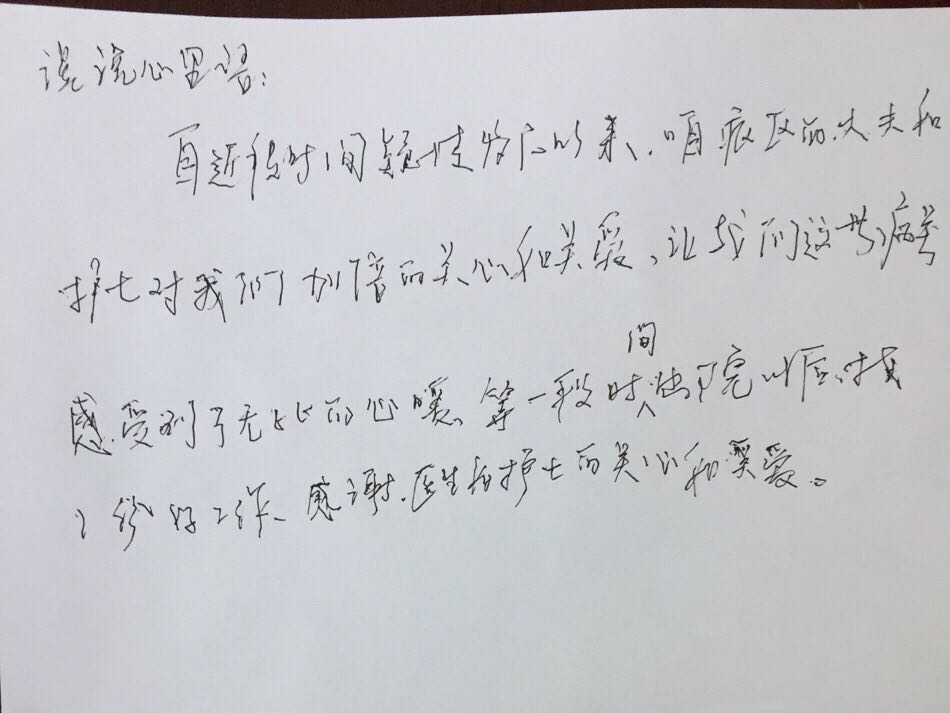 说说心里话:
自近段时间疑性发应以来、咱病区的大夫和
护士对我们加倍的关心和关爱、让我们这些病号
感受到了无比的心暖、等一段时间出了院以后、找
个份好工作、感谢、医生和护士的关心和关爱。